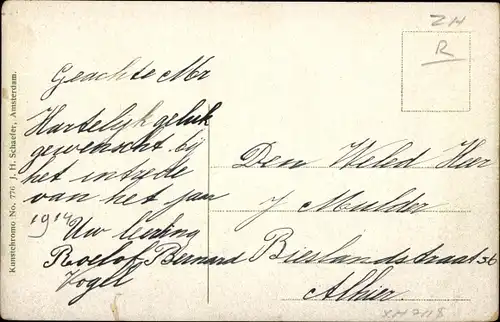 Kunstchromo No. 776 J. H. Schaefer, Amsterdam.
ZH
R
Geachte Mr
Hartelijk geluk
gewenscht bij
het intrede
van het jaar
1914 Uw leerling
Roelof Bernard
Vogel
Den Weled Heer
J Mulder
Bieslandstraat 56
Alhier.